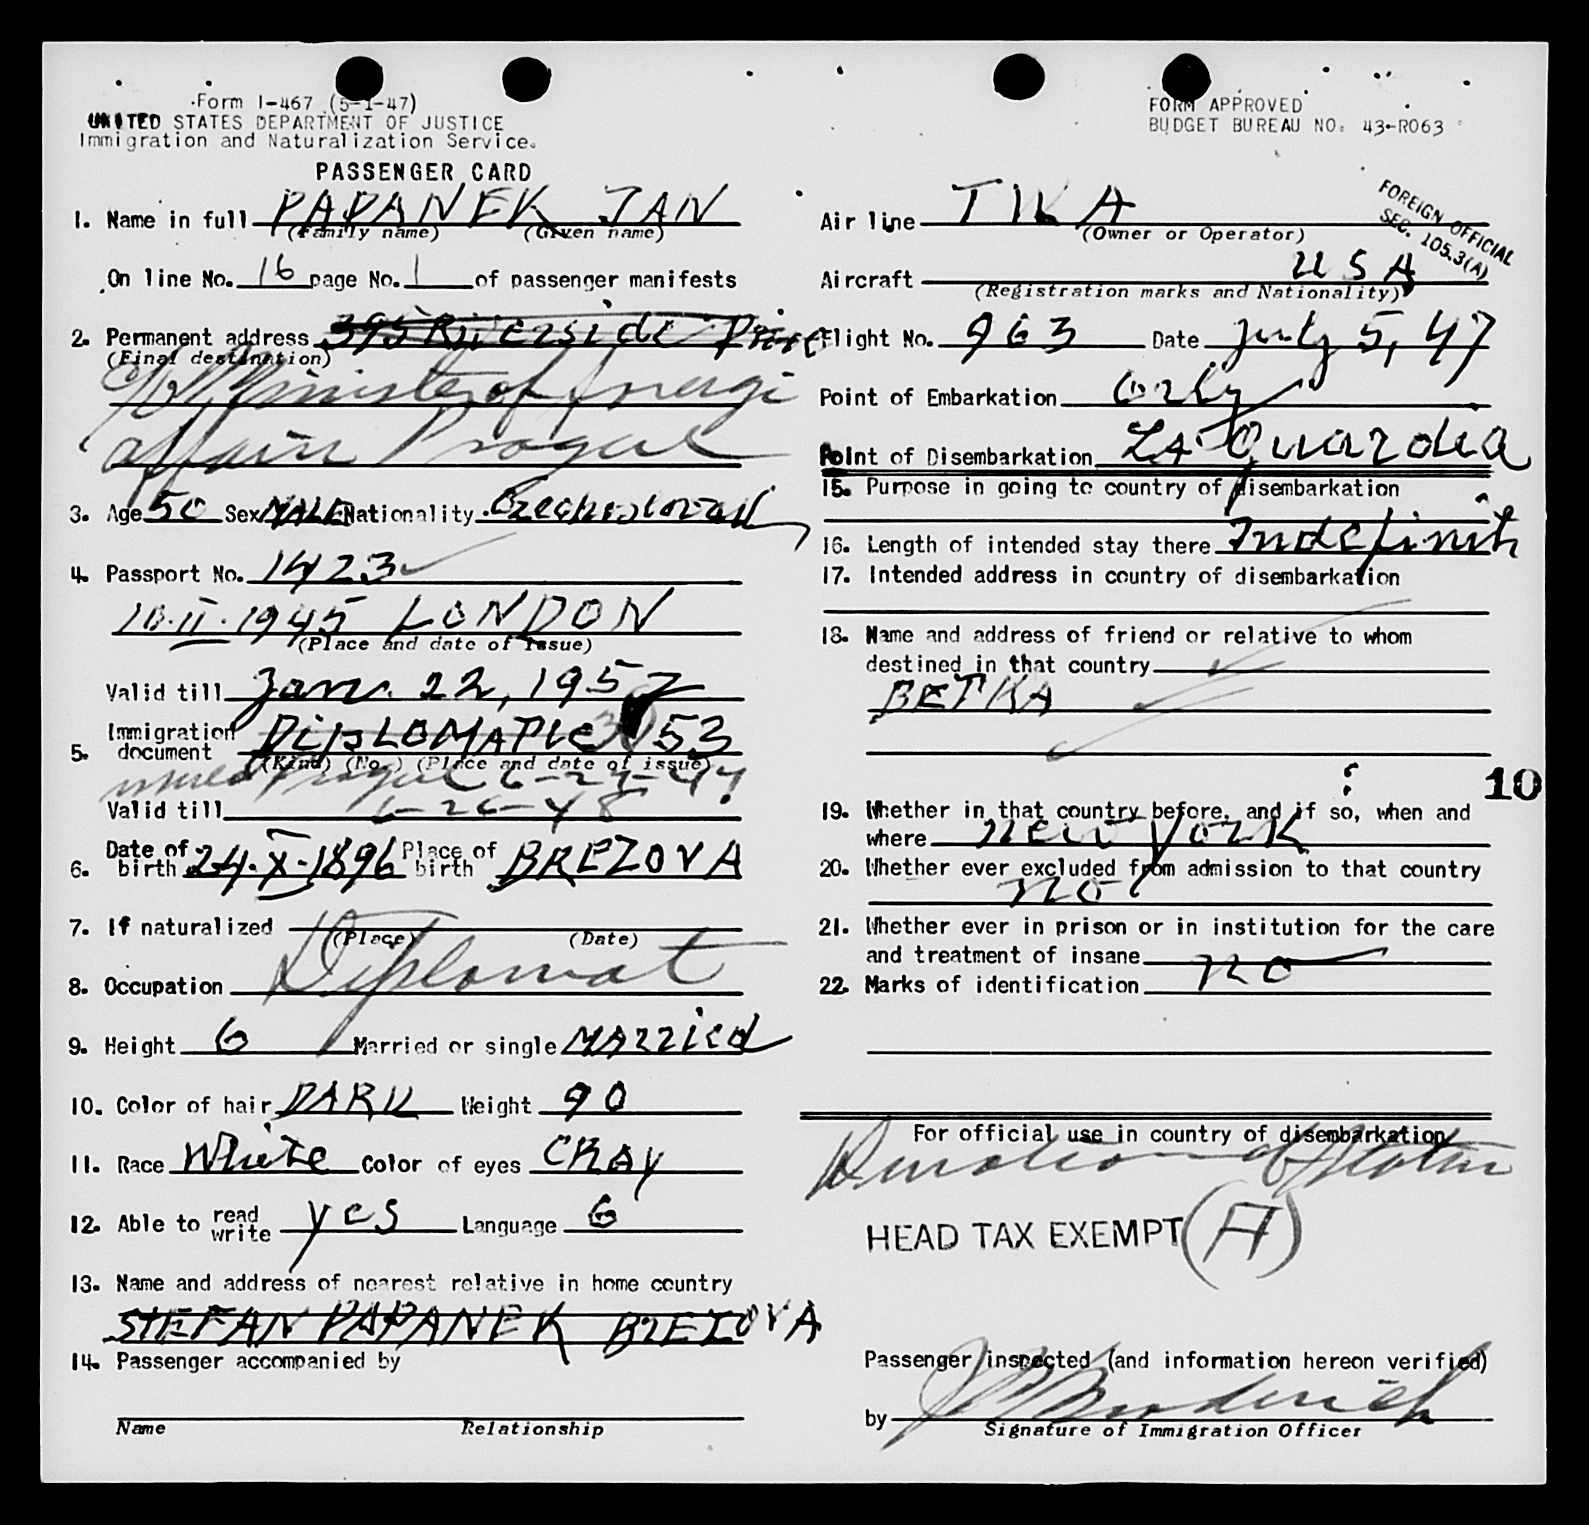 Form I-467 (5-1-47)
UNITED STATES DEPARTMENT OF JUSTICE
Immigration and Naturalization Service.
PASSENGER CARD
1. Name in full PAPANEK JAN
(Family name) (Given name)
On line No. 16 page No. 1 of passenger manifests
2. Permanent address 395 Riverside Drive
(Final destination)
c/o Minister of Foreign
affairs Prague
3. Age 50 Sex MALE Nationality Czechoslovak
4. Passport No. 1423
10.II.1945 LONDON
(Place and date of issue)
Valid till Jan. 22, 1957
5. Immigration document DiPLOMATIC 53
(Kind) (No.) (Place and date of issue)
Prague 6-27-47
Valid till 6-26-48
6. Date of birth 24.X.1896 Place of birth BREZOVA
7. If naturalized
(Place) (Date)
8. Occupation Diplomat
9. Height 6 Married or single MARRied
10. Color of hair DARK Weight 90
11. Race White Color of eyes GRAY
12. Able to read write yes Language 6
13. Name and address of nearest relative in home country
STEFAN PAPANEK BREZOVA
14. Passenger accompanied by
Name Relationship
FORM APPROVED
BUDGET BUREAU NO. 43-R063
FOREIGN OFFICIAL
SEC. 105.3(A)
Air line TWA
(Owner or Operator)
Aircraft USA
(Registration marks and Nationality)
Flight No. 963 Date July 5, 47
Point of Embarkation Orly
Point of Disembarkation LA Guardia
15. Purpose in going to country of disembarkation
16. Length of intended stay there Indefinit
17. Intended address in country of disembarkation
18. Name and address of friend or relative to whom
destined in that country
BETKA
10
19. Whether in that country before, and if so, when and
where New York
20. Whether ever excluded from admission to that country
no
21. Whether ever in prison or in institution for the care
and treatment of insane no
22. Marks of identification
For official use in country of disembarkation
Duration of Status
HEAD TAX EXEMPT (A)
Passenger inspected (and information hereon verified)
by
Signature of Immigration Officer